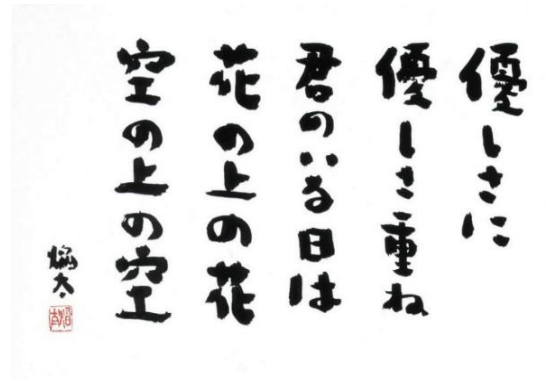 優しさに
優しさ重ね
君のいる日は
花の上の花
空の上の空
煽太